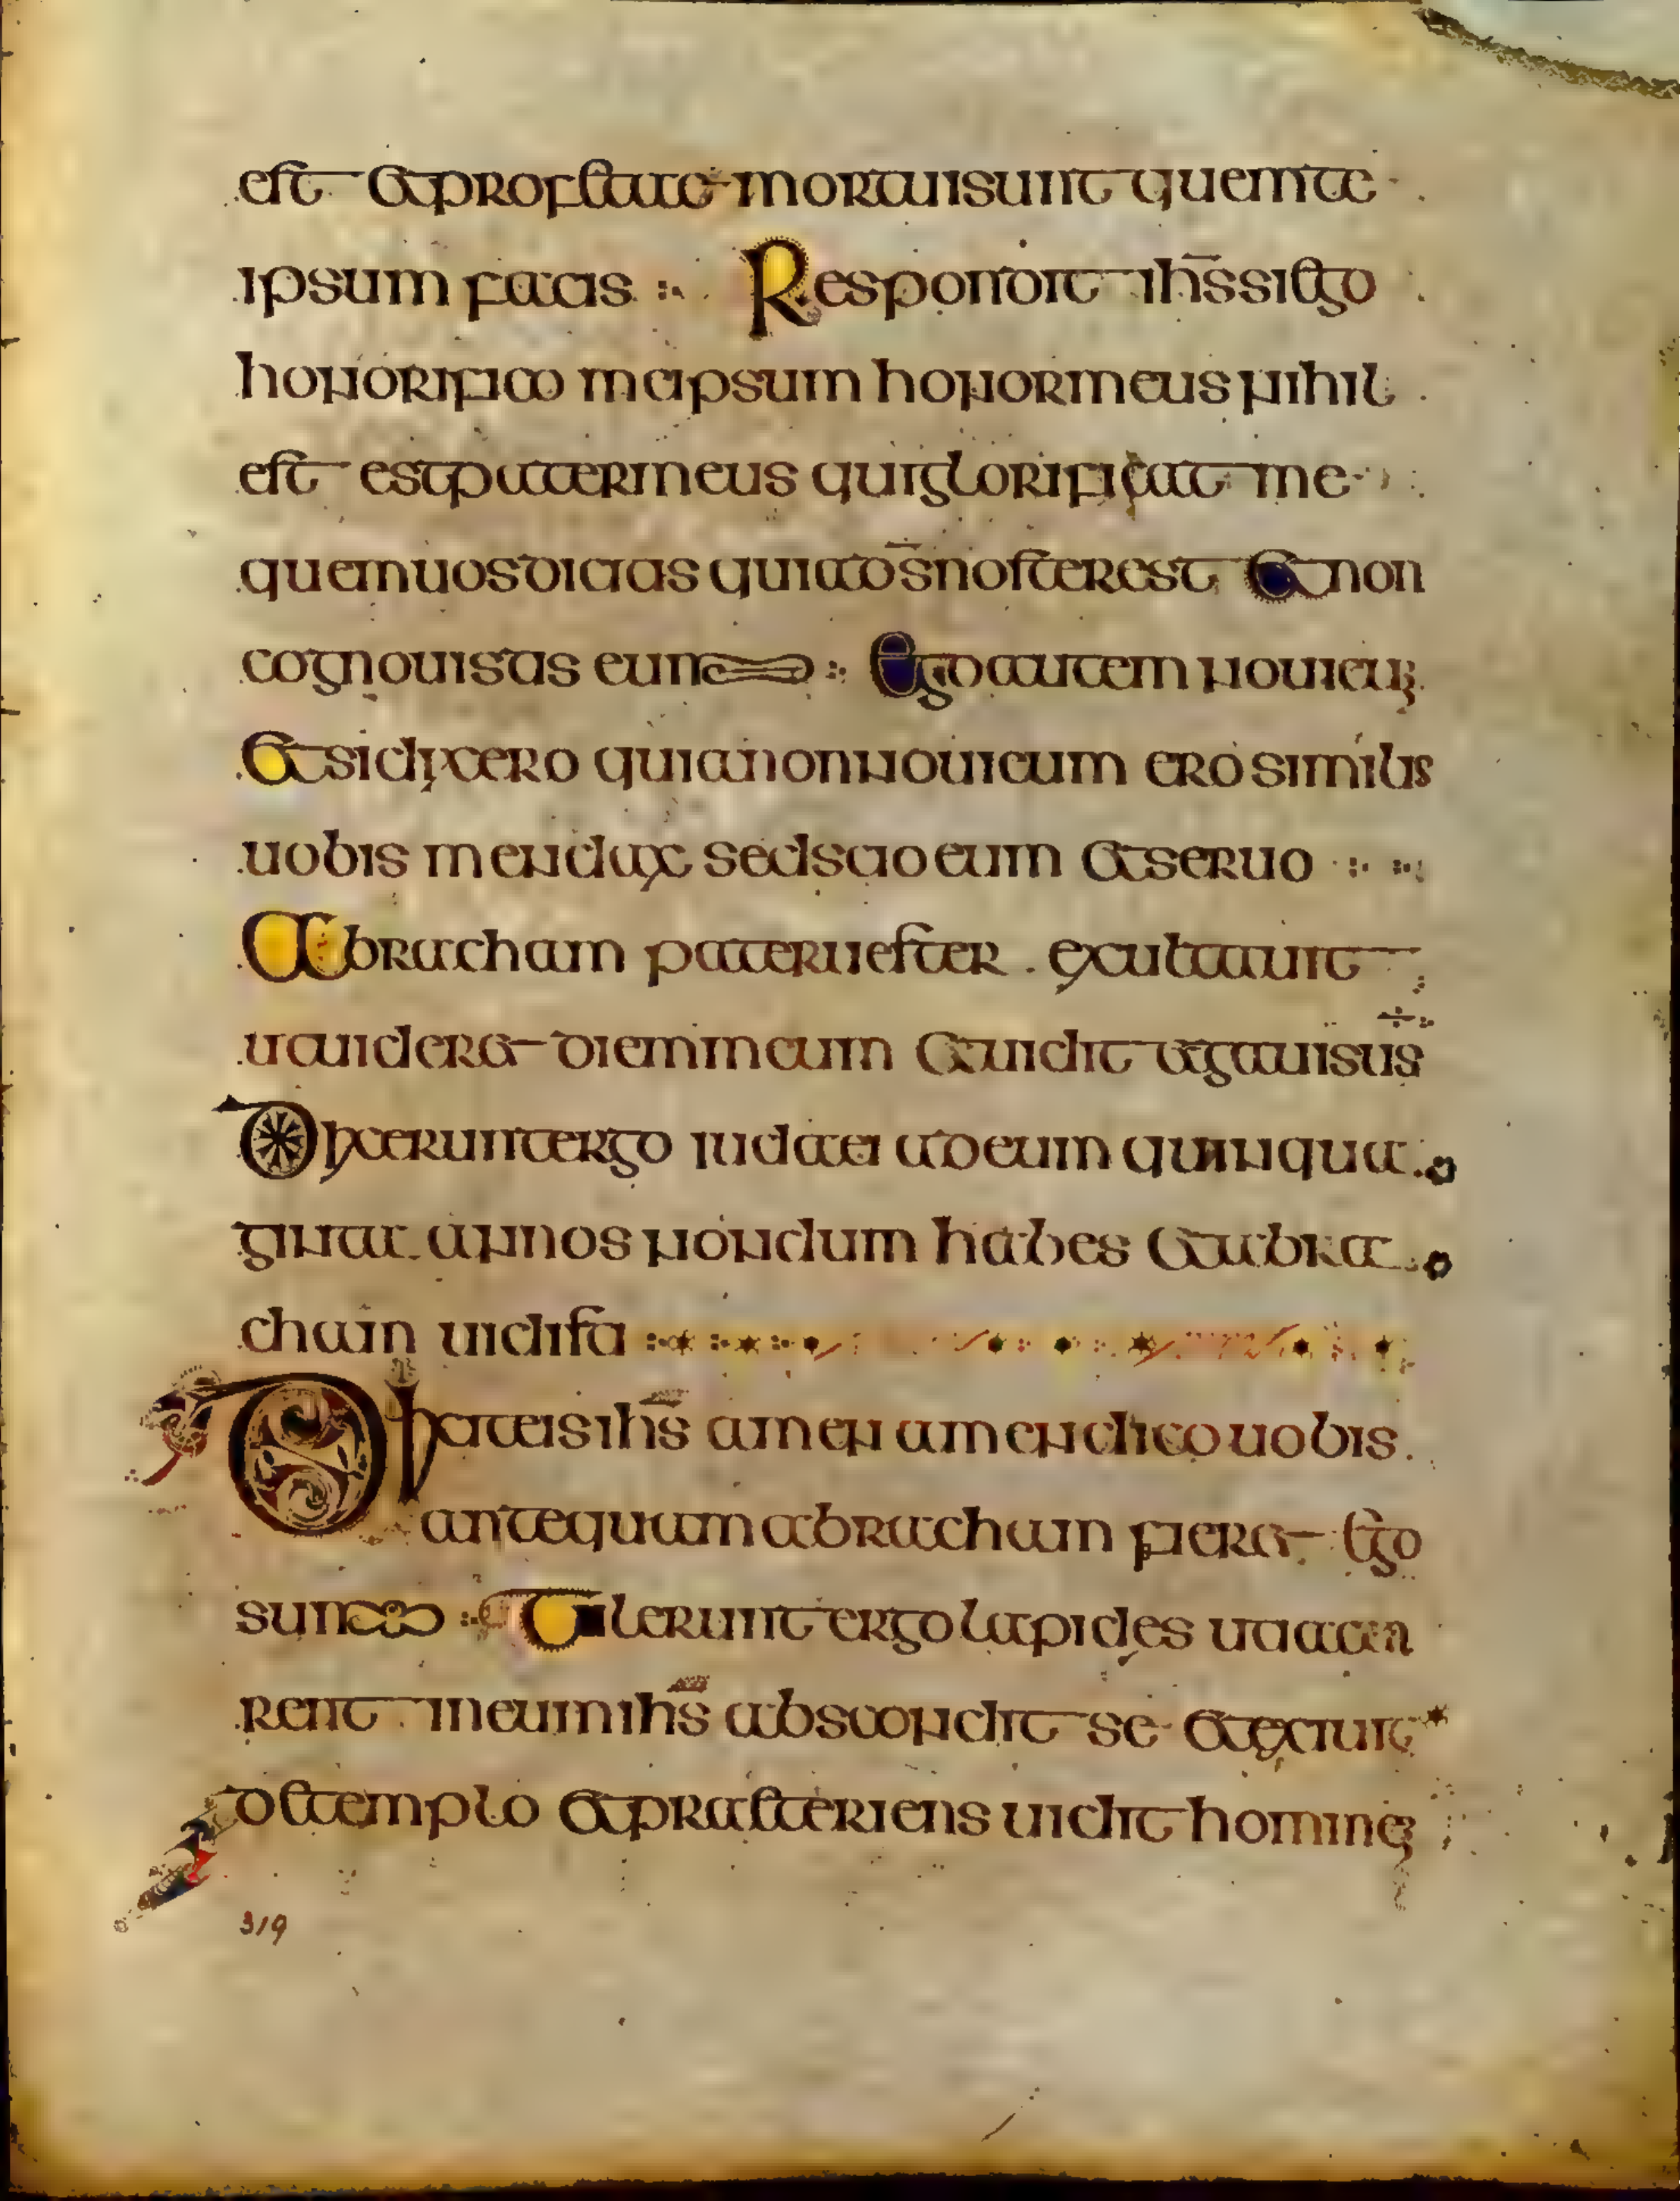 est et profetae mortui sunt quem te
ipsum facis Respondit ihs si ego
honorifico me ipsum honor meus nihil
est est pater meus qui glorificat me
quem uos dicitis quia ds noster est et non
cognouistis eum Ego autem noui eum
et si dixero quia non noui eum ero similis
uobis mendax sed scio eum et seruo
Abracham pater uester exultauit
ut uideret diem meum et uidit et gauisus
Dixerunt ergo iudaei ad eum quinqua
ginta annos nondum habes et abra
cham uidisti
Dixit eis ihs amen amen dico uobis
antequam abracham fieret ego
sum Tulerunt ergo lapides ut iace
rent in eum ihs abscondit se et exiuit
de templo et praeteriens uidit hominem
319